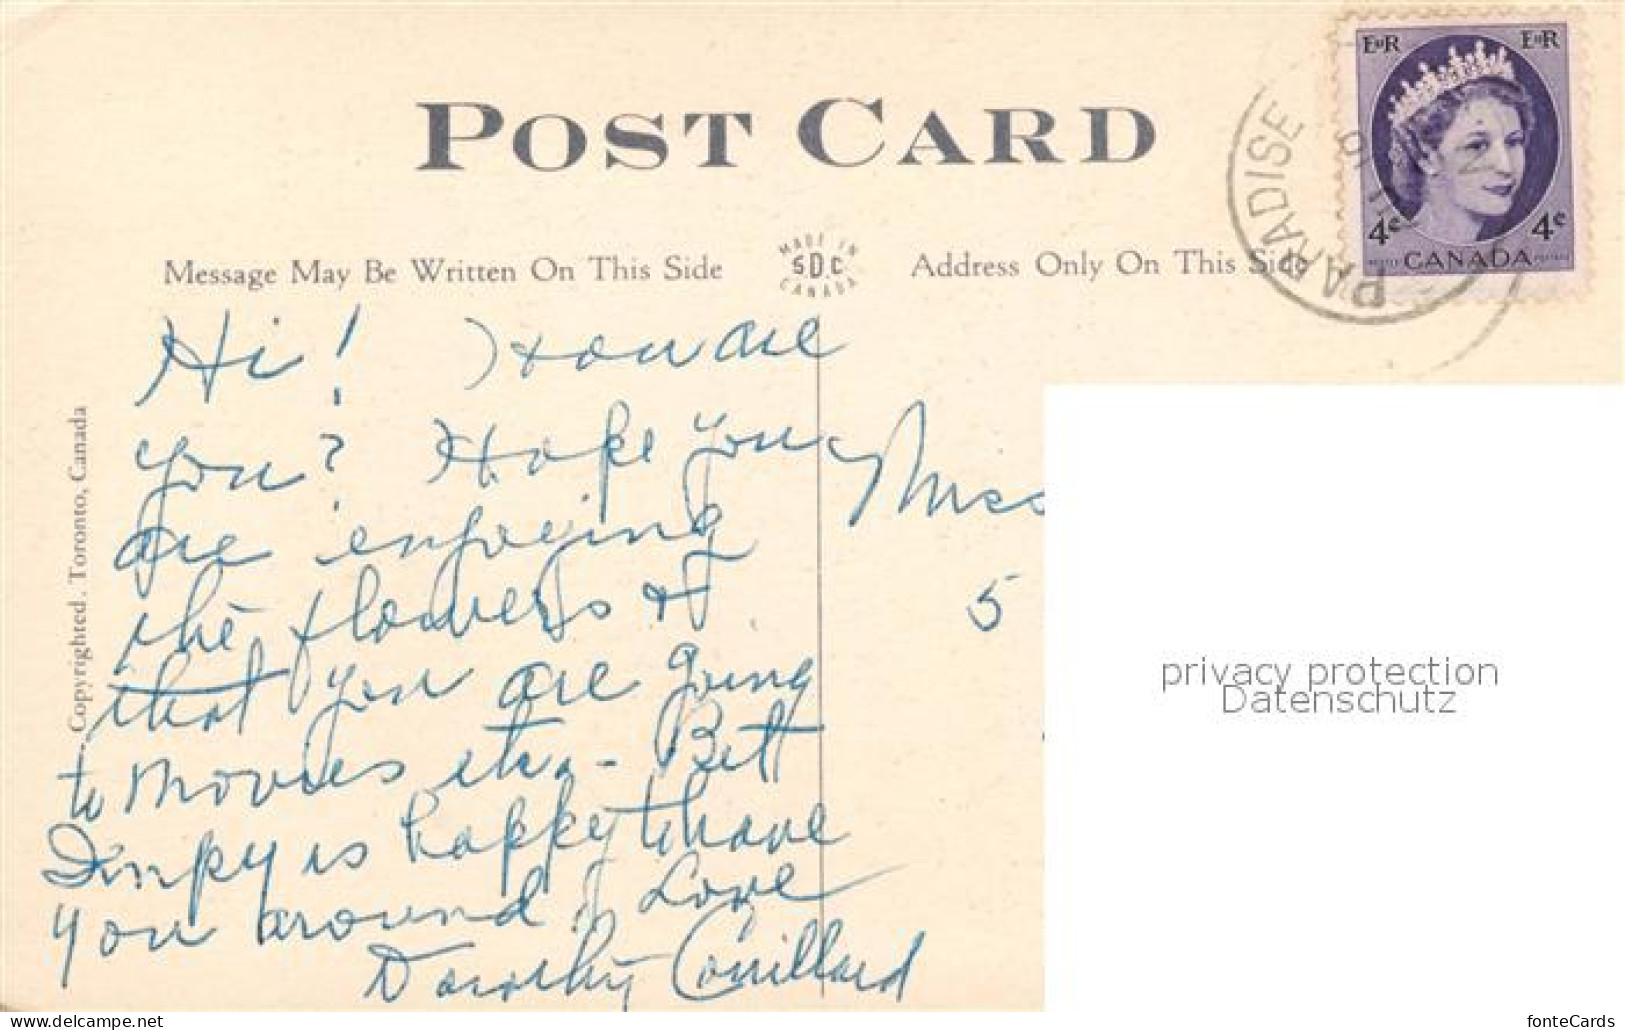 POST CARD
EIIR EIIR
4c 4c
POSTES CANADA POSTAGE
PARADISE
Message May Be Written On This Side
MADE IN
SDC
CANADA
Address Only On This Side
Copyrighted. Toronto, Canada
Hi! How are
you? Hope you
are enjoying
the flowers &
that you are going
to movies etc. - Bett
is happy to have
you around. Love
Dorothy Couillard
Miss
5
privacy protection
Datenschutz
www.delcampe.net
fonteCards